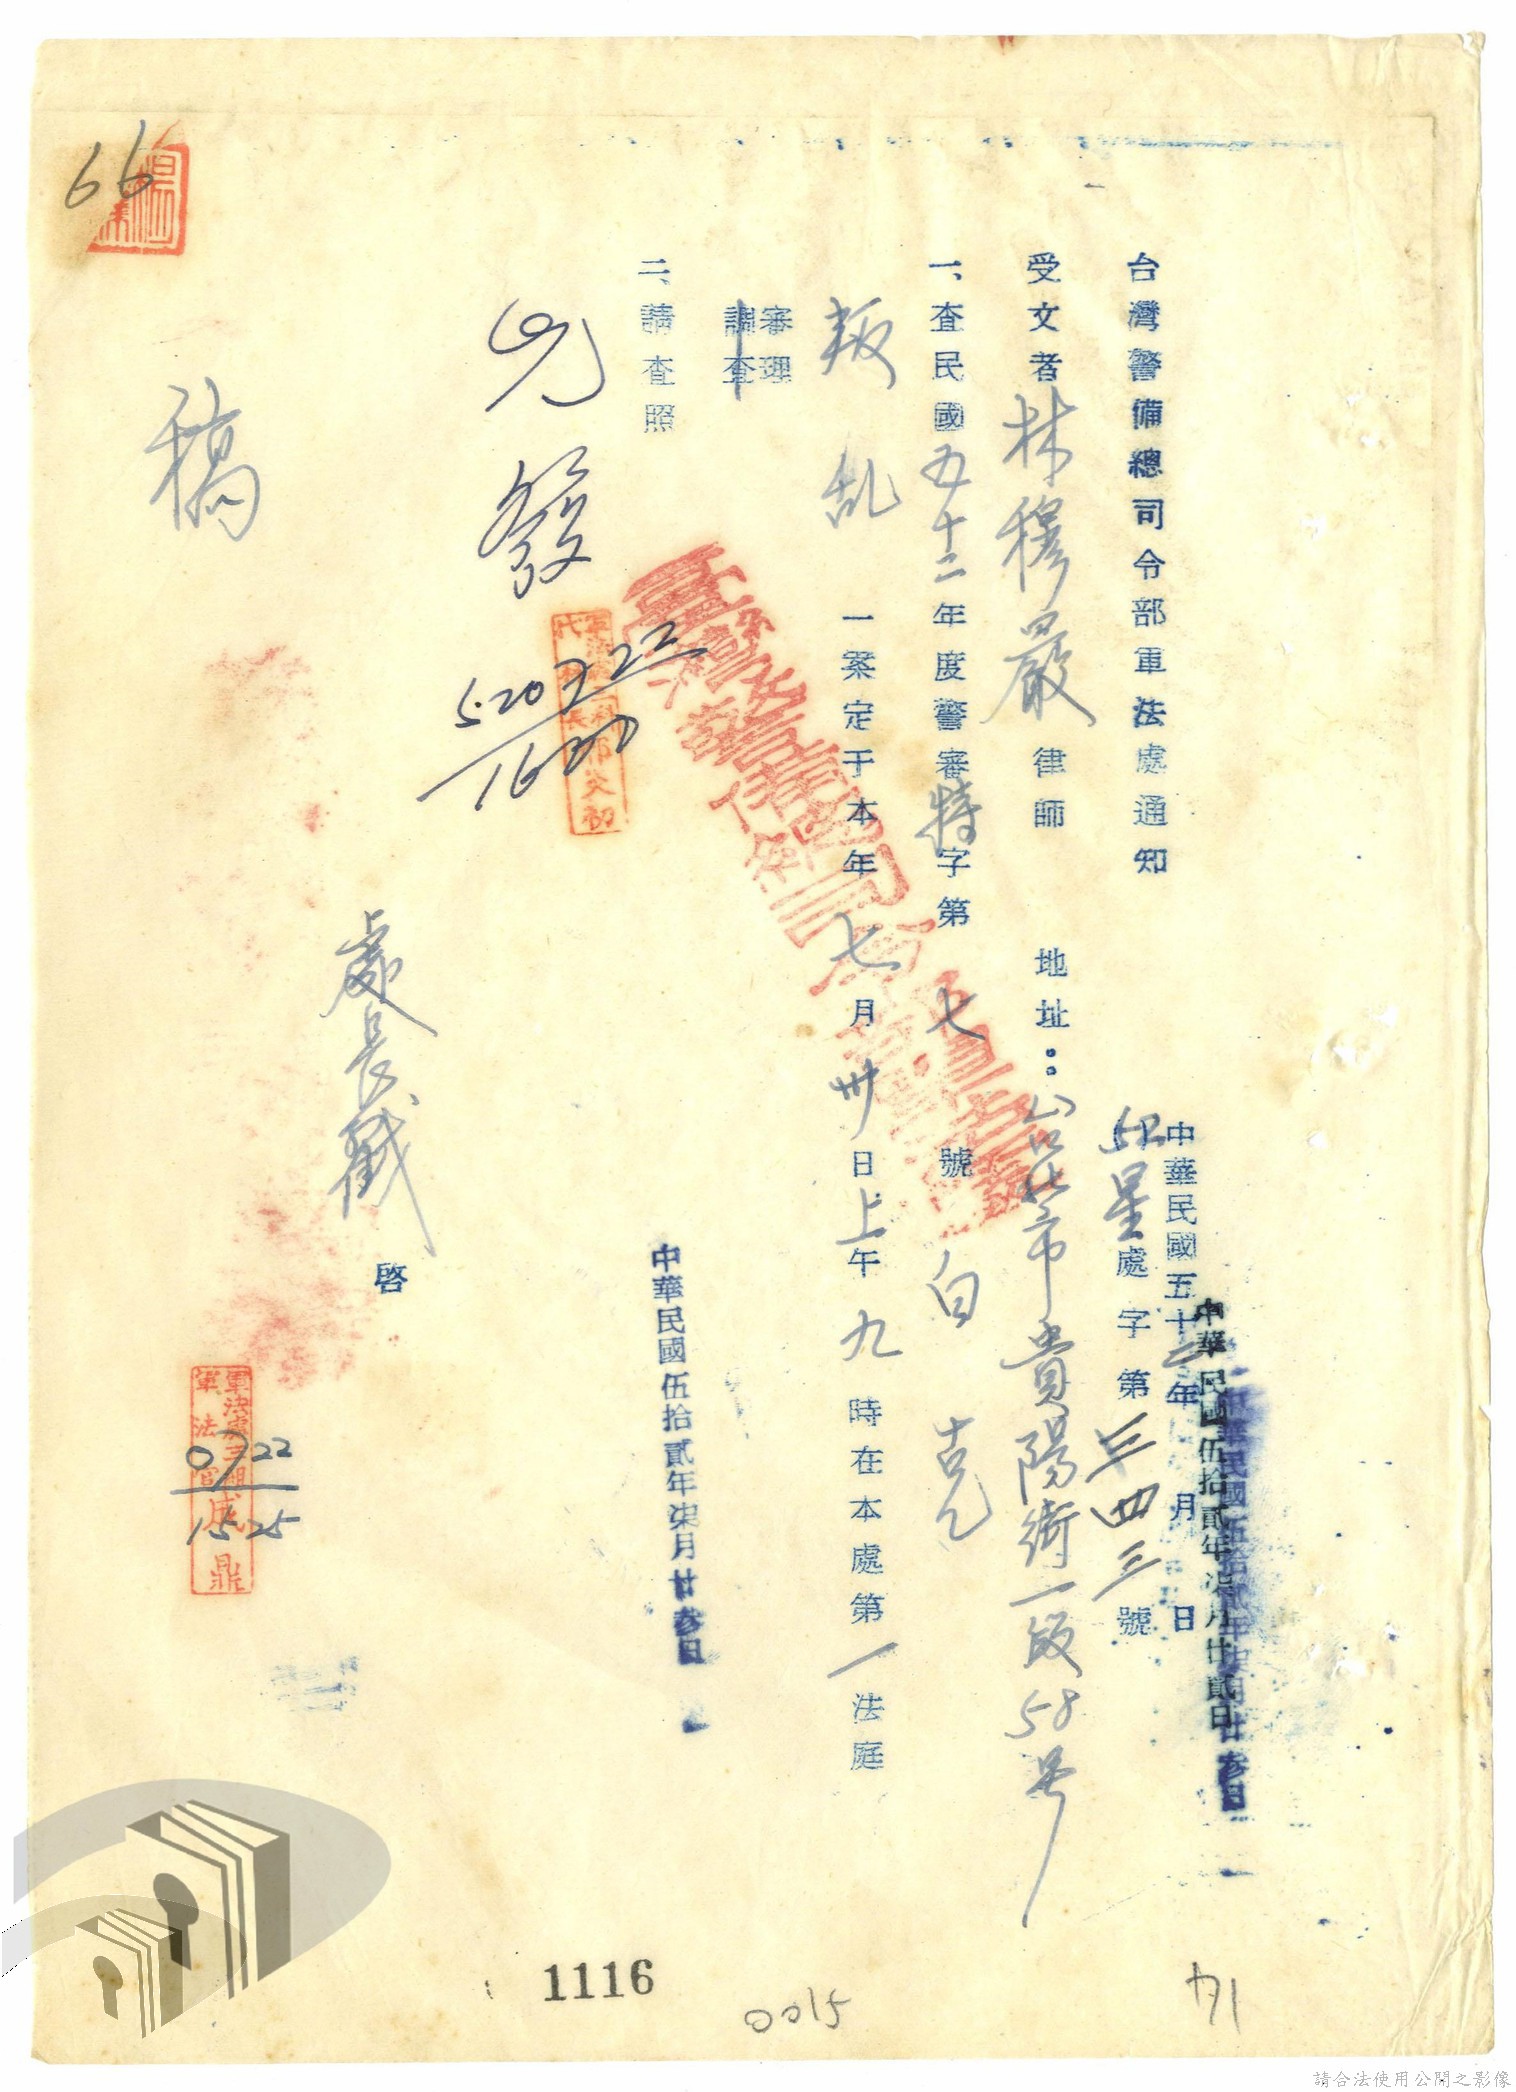 台灣警備總司令部軍法處通知
中華民國五十二年 月 日
中華民國伍拾貳年柒月廿貳日
中華民國伍拾貳年柒月廿參日
52星處字第三四三號
受文者林穆嚴律師 地址：台北市貴陽街一段58号
一、查民國五十二年度警審特字第 七 號 白克
叛乱 一案定于本年七月卅日上午九時在本處第一法庭
審理
調查
二、請查照
中華民國伍拾貳年柒月廿參日
發
520722
1600
處長戳 啓
軍法官
0722
1525
稿
66
1116
0015
71
請合法使用公開之影像